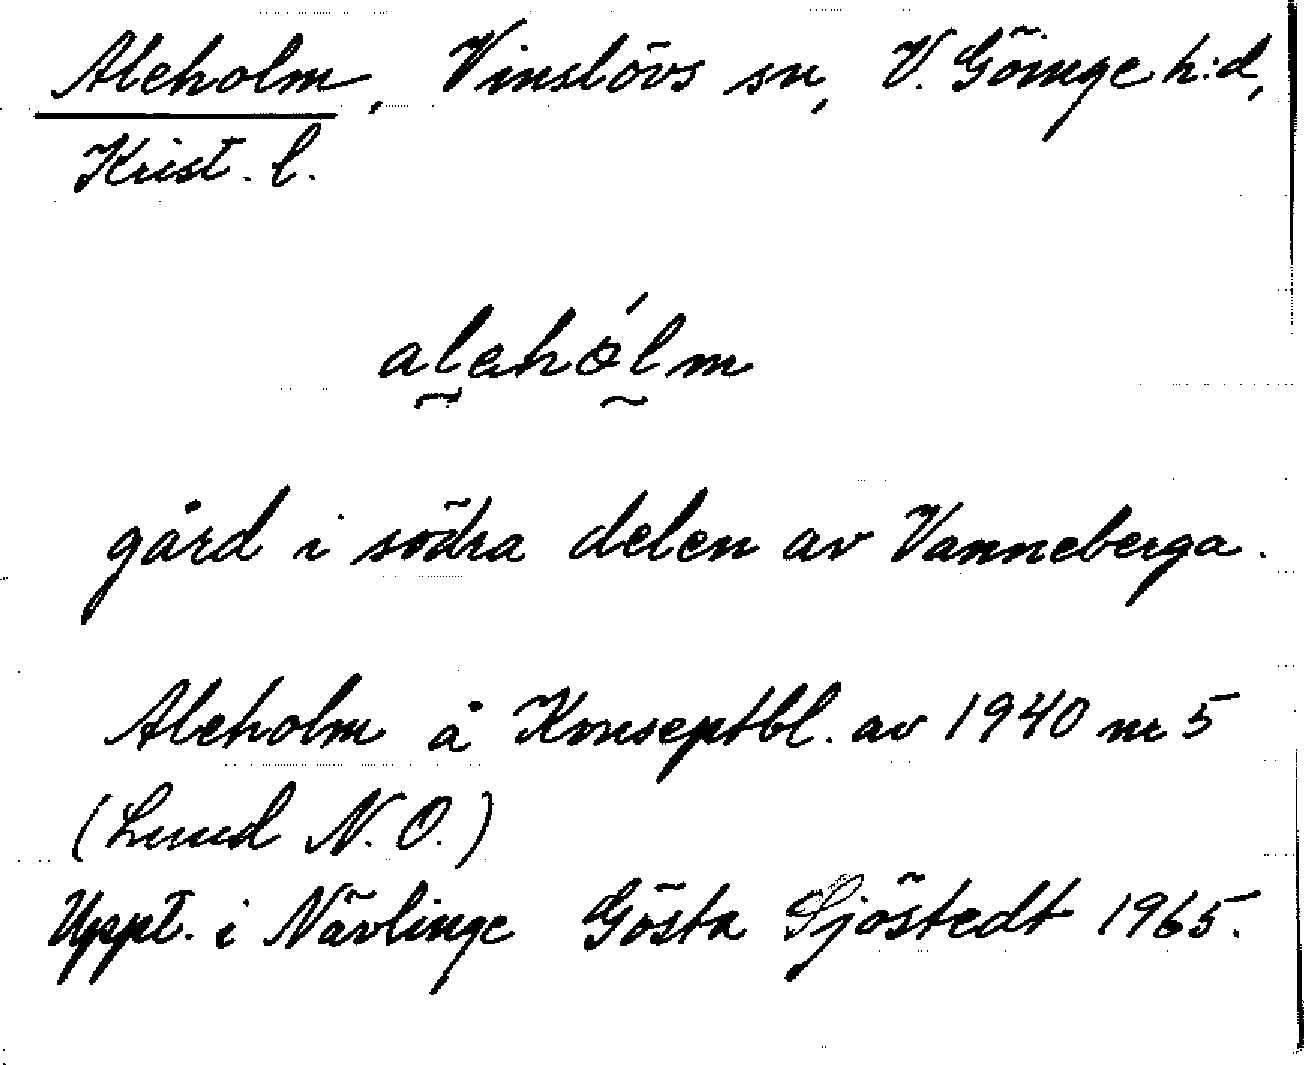 Aleholm, Vinslövs sn, V. Göinge h:d,
Krist. l.
alahólm
gård i södra delen av Vanneberga.
Aleholm å Konseptbl. av 1940 nr 5
(Lund N.O.)
Uppt. i Nävlinge Gösta Sjöstedt 1965.